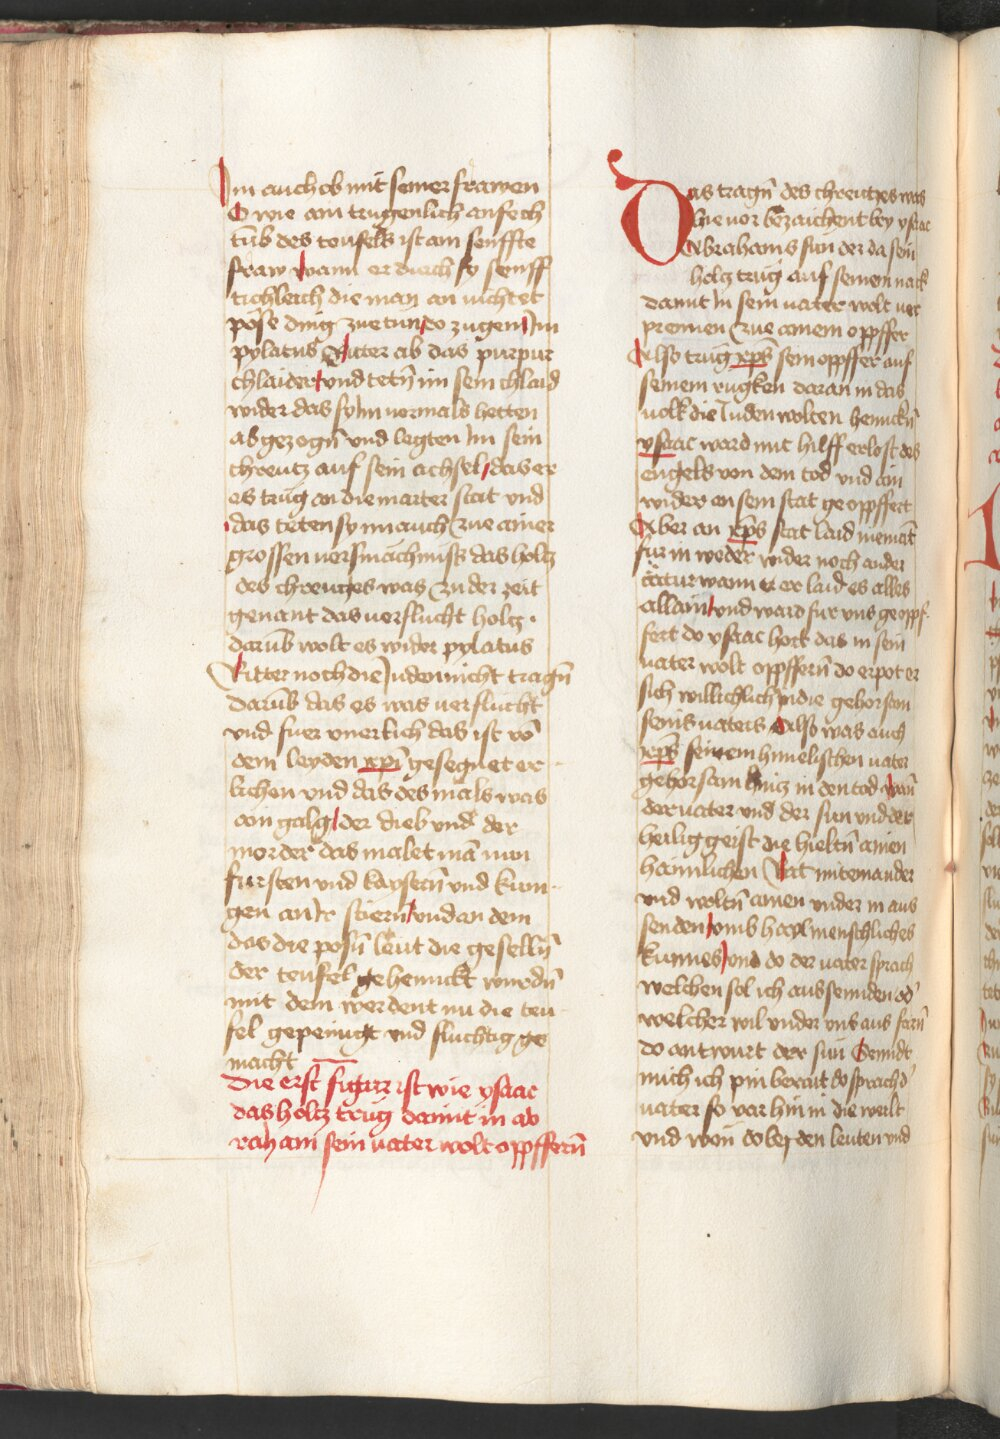 Im auch ob mit seiner frawen
O wie ain trugenlich anfech
tūb des teufels ist ain senffte
fraw wann er durch sy senff
tichleich die man an vichtet
pöse ding zue tun do zugen Im
pylatus Ritter ab das purpur
chlaider vnd tetn̄ im sein chlaid
wider das sy Im vormals hetten
ab gezogn̄ vnd legten Im sein
chreutz auf sein achsel das er
es trug an die marter stat vnd
das teten sy im auch zue ainer
grossen versmächnusz das holtz
des chreutzes was zu der zeit
genant das verflucht holtz.
darūb wolt es wider pylatus
Ritter noch die Juden nicht tragn̄
darūb das es was verflucht
vnd fuer vnerlich das ist vō
dem leyden xp̄i gesegnet er
lichen vnd das des mals was
ain galg der dieb vnd der
morder das malet mā nun
fursten vnd kaysern̄ vnd kun
gen an Ir stiern̄ vnd an dem
das die posn̄ leut die geselln̄
der teufel gehenckt wurdn̄
mit dem werdent nu die teu
fel gepeinigt vnd fluchtig ge
macht
Die erst figur ist wie ysaac
das holtz trug damit in ab
raham sein vater wolt oppffern̄
Das tragn̄ des chreutzes was
hie vor bezaichent bey ysaac
Abrahams sun der da sein
holtz trug auf seinem nack
damit In sein vater wolt ver
prennen zue ainem oppffer
Also trug xp̄s sein oppffer auf
seinem rugken daran in das
volk die Juden wolten henckn̄
ysaac ward mit hilff erlost des
engels von dem tod vnd ain
wider an sein stat geoppffert
Aber an xp̄s stat laid niemāt
fur in weder wider noch ander
creatur wann er laid es alles
allain vnd ward fur vns geoppf
fert do ysaac hort das in sein
vater wolt oppffern̄ do erpot er
sich willichlich in die gehorsam
seins vaters Also was auch
xp̄s seinem himelischen vater
gehorsam hintz in den tod wan̄
der vater vnd der sun vnd der
heilig geist die hieltn̄ ainen
haimlichen Rat miteinander
vnd woltn̄ ainen vnder in aus
senden vmb hayl menschliches
kunnes vnd do der vater sprach
welchen sol ich aussennden od'
welcher wil vnder vns aus farn̄
do antwurt der sun Senndt
mich ich pin berait do sprach d'
vater so var hin in die werlt
vnd won do bey den leuten vnd